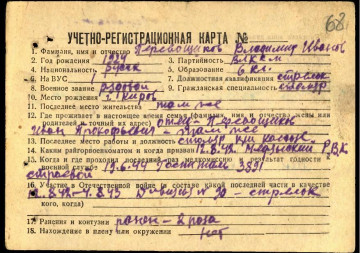 68
УЧЕТНО-РЕГИСТРАЦИОННАЯ КАРТА №
1. Фамилия, имя и отчество Перевощиков Владимир Иванов
2. Год рождения 1924 3. Партийность ВЛКСМ
4. Национальность русск 5. Образование 6 кл.
6. На ВУС 7. Должностная квалификация стрелок
8. Военное звание рядовой 9. Гражданская специальность столяр
10. Место рождения г. Киров
11. Последнее место жительства там же
12. Где проживает в настоящее время семья (фамилия, имя и отчества жены или
родителей и точный их адрес) отец Перевощиков
Иван Прокофьевич - там же
13. Последнее место работы и должность столяр
14. Каким райгорвоенкоматом и когда призван 8.42 РВК
15. Когда и где проходил последний раз медкомиссию и результат годности
к военной службе 19.6.44 Госпиталь 3891
строевой
16. Участие в Отечественной войне (в составе какой последней части в качестве
кого, когда)
8.42 - 4.8.43 Дивизия 90 - стрелок
17. Ранения и контузии ранен - 2 раза
18. Нахождение в плену или окружении нет